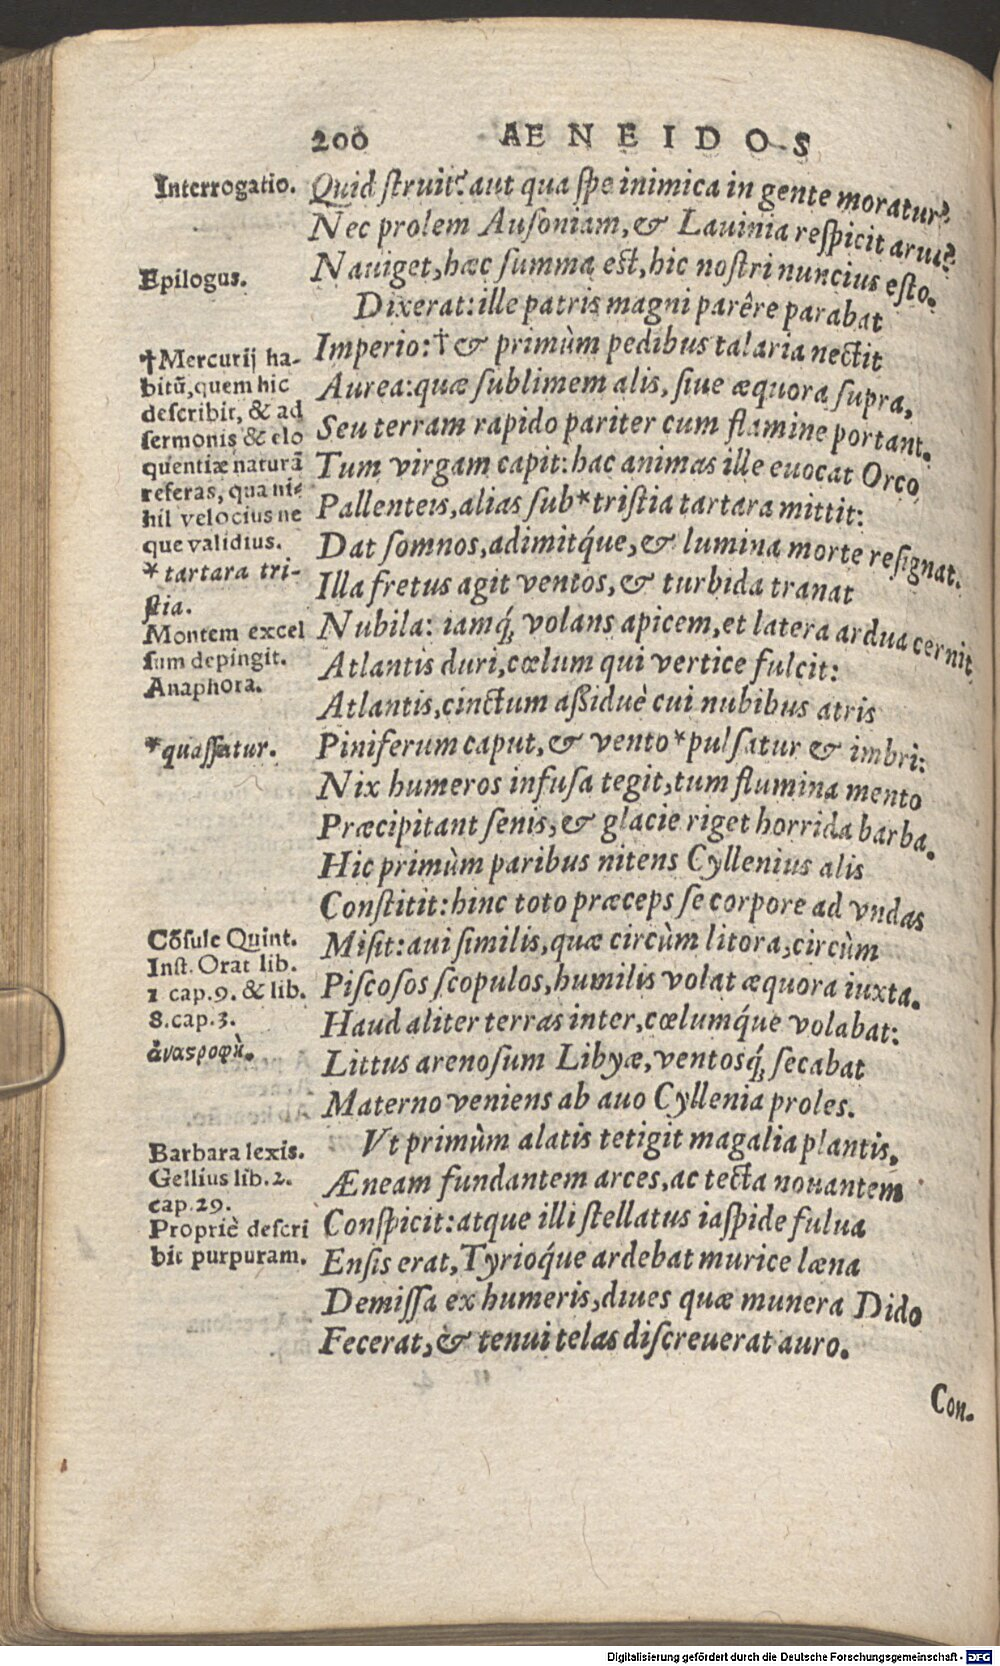 200 AENEIDOS
Interrogatio.
Quid ſtruit? aut qua ſpe inimica in gente moratur?
Nec prolem Auſoniam, & Lauinia reſpicit arua?
Epilogus.
Nauiget, hæc ſumma eſt, hic noſtri nuncius eſto.
Dixerat: ille patris magni parêre parabat
Imperio: † & primùm pedibus talaria nectit
Aurea: quæ ſublimem alis, ſiue æquora ſupra,
Seu terram rapido pariter cum flamine portant.
Tum virgam capit: hac animas ille euocat Orco
Pallenteis, alias ſub * triſtia tartara mittit:
Dat ſomnos, adimitq́ue, & lumina morte reſignat.
Illa fretus agit ventos, & turbida tranat
Nubila: iamq́; volans apicem, et latera ardua cernit
Atlantis duri, cœlum qui vertice fulcit:
Atlantis, cinctum aßiduè cui nubibus atris
Piniferum caput, & vento * pulſatur & imbri:
Nix humeros infuſa tegit, tum flumina mento
Præcipitant ſenis, & glacie riget horrida barba.
Hic primùm paribus nitens Cyllenius alis
Conſtitit: hinc toto præceps ſe corpore ad vndas
Miſit: aui ſimilis, quæ circùm litora, circùm
Piſcoſos ſcopulos, humilis volat æquora iuxta.
Haud aliter terras inter, cœlumq́ue volabat:
Littus arenoſum Libyæ, ventosq́; ſecabat
Materno veniens ab auo Cyllenia proles.
Vt primùm alatis tetigit magalia plantis,
Æneam fundantem arces, ac tecta nouantem
Conſpicit: atque illi ſtellatus iaſpide fulua
Enſis erat, Tyrioq́ue ardebat murice læna
Demiſſa ex humeris, diues quæ munera Dido
Fecerat, & tenui telas diſcreuerat auro.
†Mercurij ha-
bitū, quem hic
deſcribit, & ad
ſermonis & elo
quentiæ naturā
referas, qua ni-
hil velocius ne
que validius.
* tartara tri-
ſtia.
Montem excel
ſum depingit.
Anaphora.
* quaſſatur.
Cōſule Quint.
Inſt. Orat lib.
1 cap. 9. & lib.
8. cap. 3.
Barbara lexis.
Gellius lib. 2.
cap. 29.
Propriè deſcri
bit purpuram.
Con-
Digitalisierung gefördert durch die Deutsche Forschungsgemeinschaft - DFG